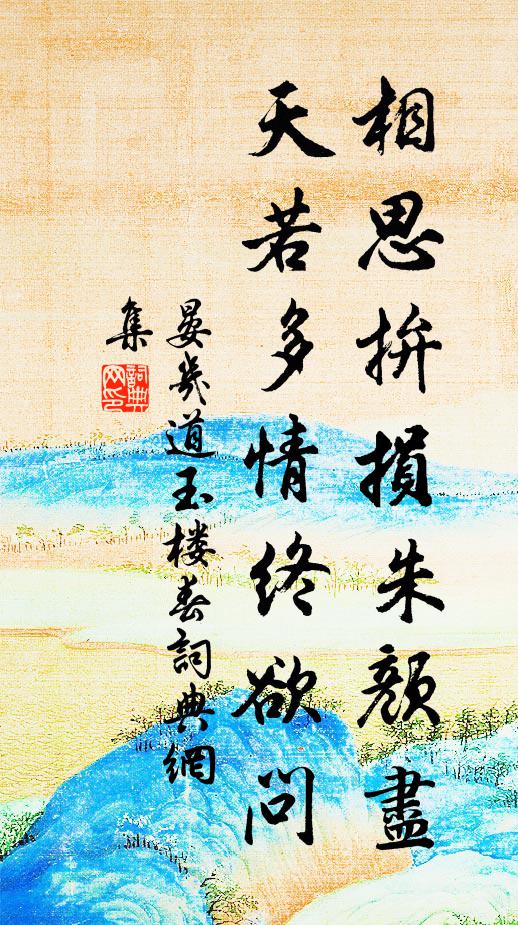 相思拚損朱顏盡
天若多情終欲問
晏幾道玉楼春詞典網
集
詞典网印